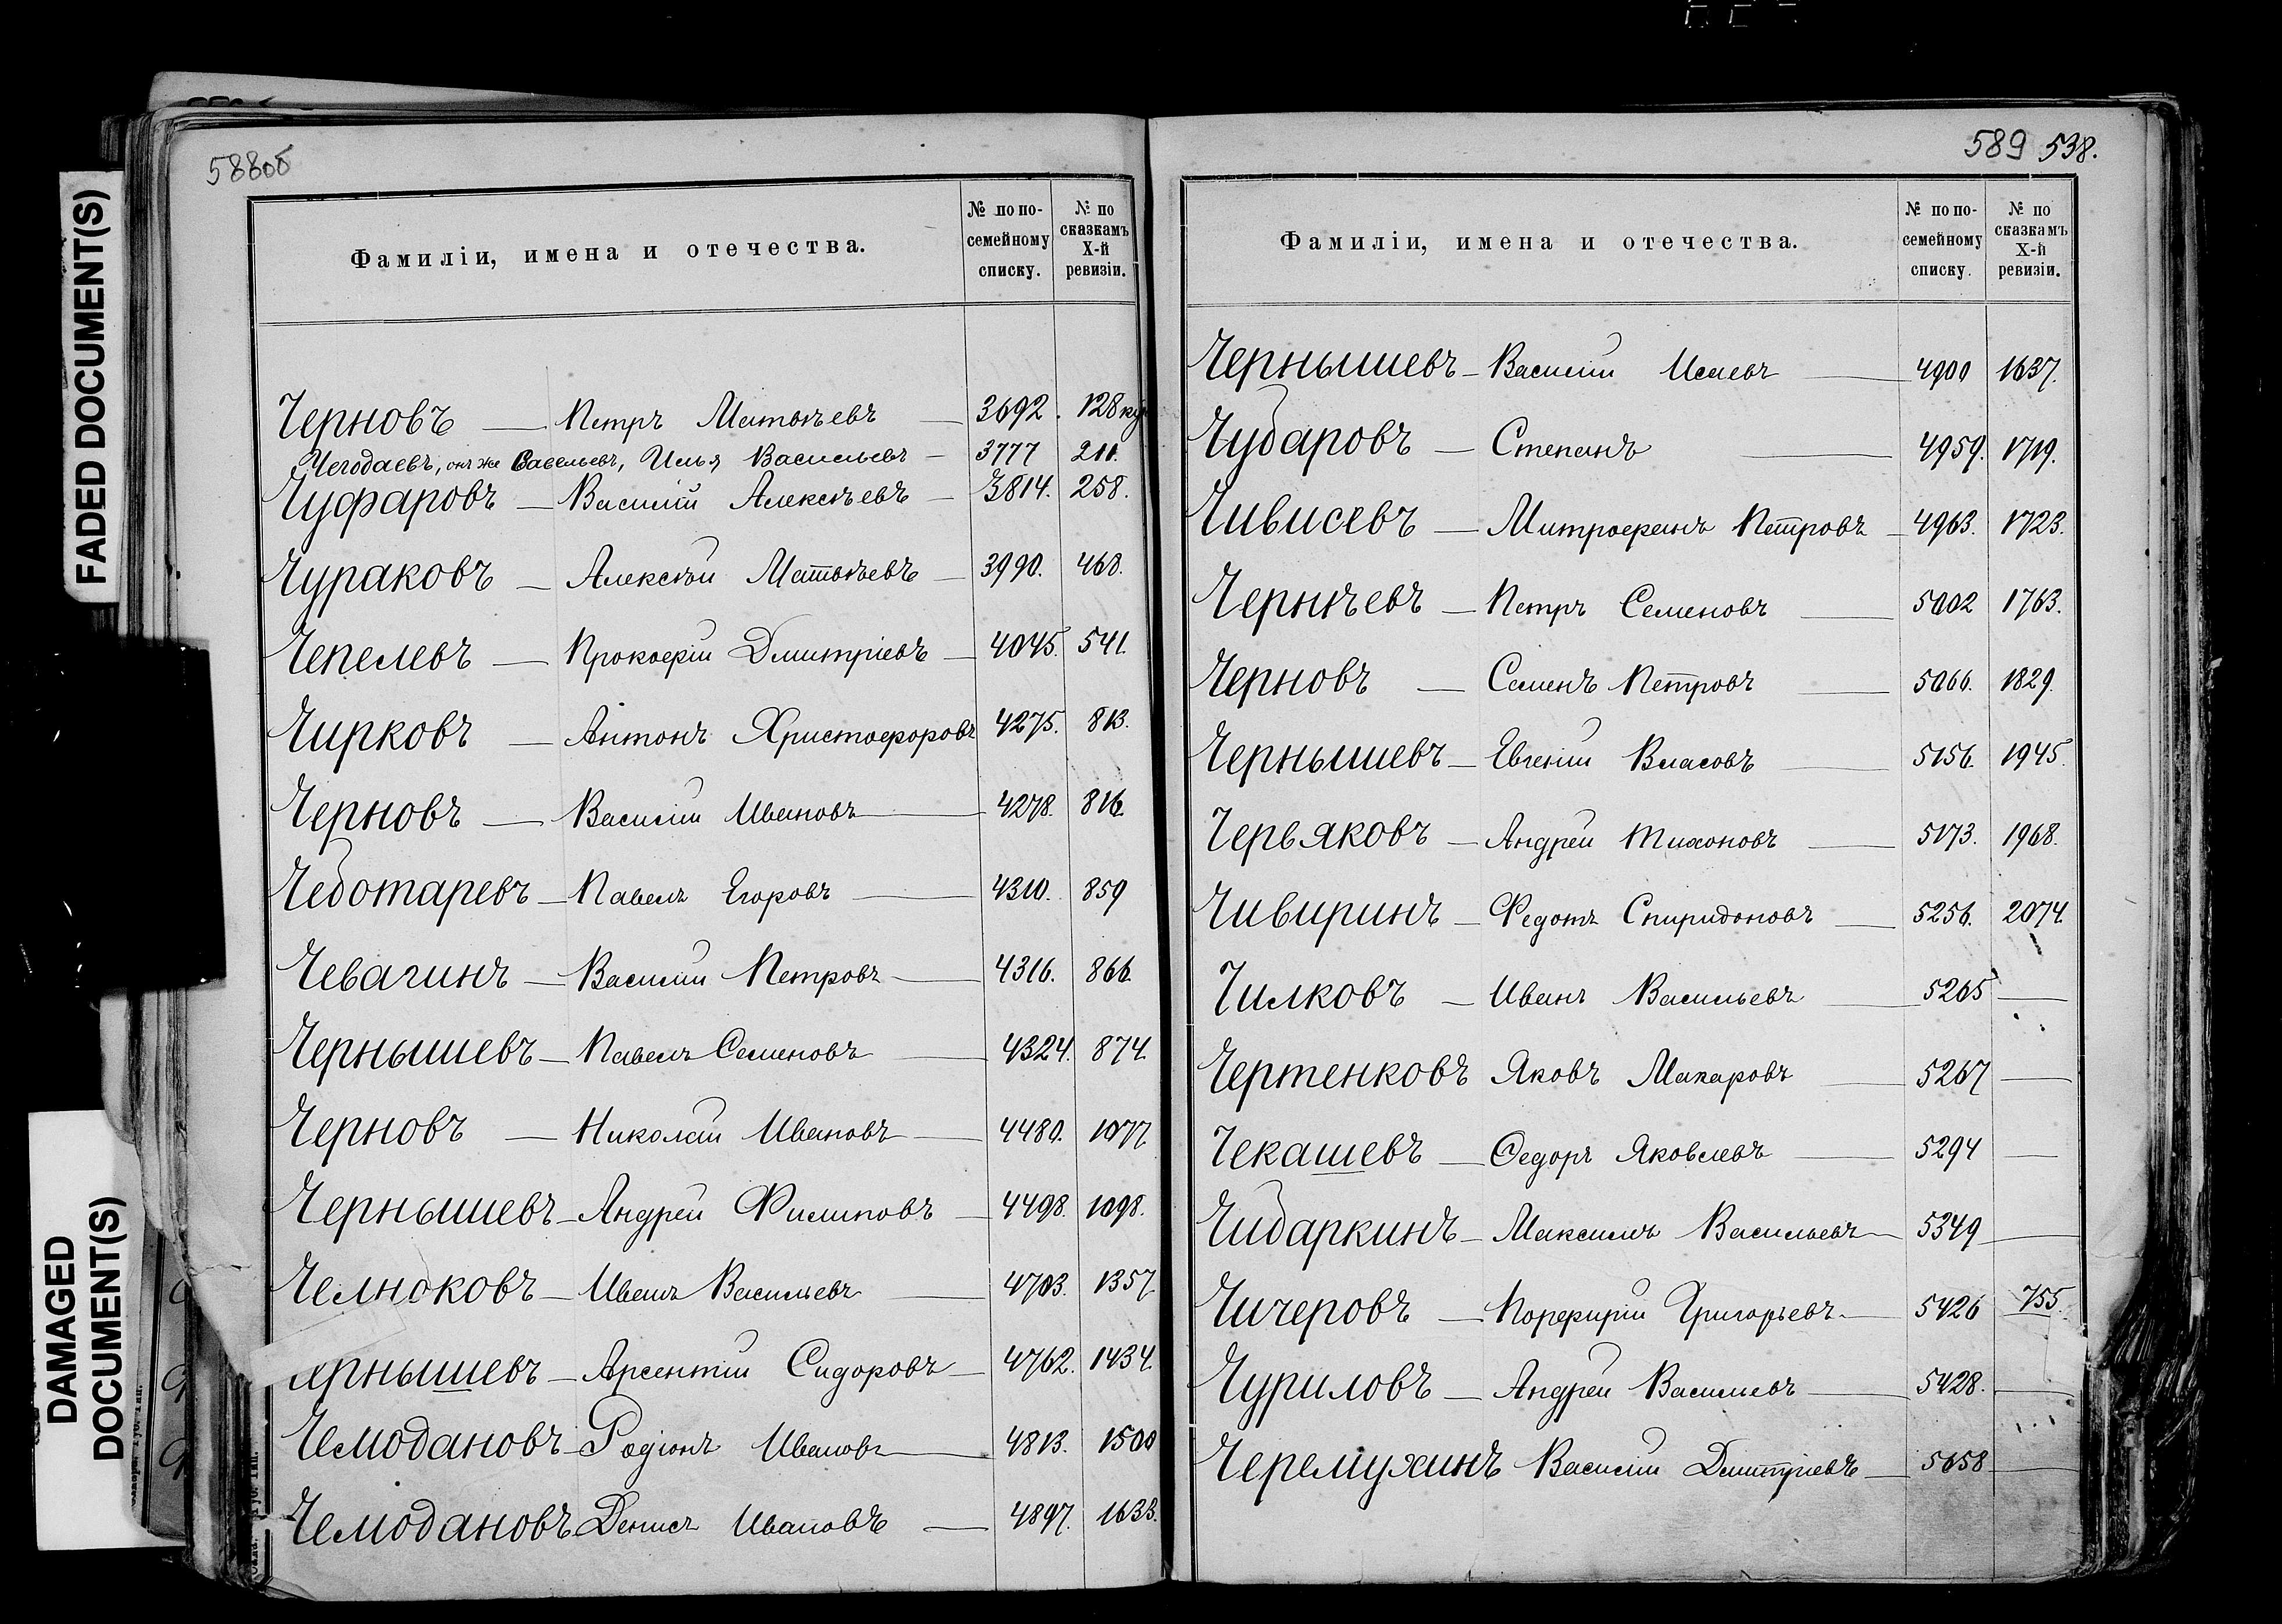 FADED DOCUMENT(S)
DAMAGED
DOCUMENT(S)
588об
Фамиліи, имена и отечества.
№ по по-
семейному
списку.
№ по
сказкамъ
X-й
ревизіи.
Черновъ — Петръ Матвѣевъ — 3692. 128 ку
Чегодаевъ, онъ же Савельевъ, Илья Васильевъ — 3777 211.
Чуфаровъ — Василій Алексѣевъ — 3814. 258.
Чураковъ — Алексѣй Матвѣевъ — 3990. 468.
Чепелевъ — Прокофій Дмитріевъ — 4045. 541.
Чирковъ — Антонъ Христофоровъ 4275. 813.
Черновъ — Василій Ивановъ — 4278. 816.
Чеботаревъ — Павелъ Егоровъ — 4310. 859
Чевагинъ — Василій Петровъ — 4316. 866.
Чернышевъ — Павелъ Семеновъ — 4324. 874.
Черновъ — Николай Ивановъ — 4480. 1077.
Чернышевъ — Андрей Филиповъ — 4498. 1098.
Челноковъ — Иванъ Васильевъ — 4703. 1357.
Чернышевъ — Арсентій Сидоровъ — 4762. 1434.
Чемодановъ — Родіонъ Ивановъ — 4813. 1500
Чемодановъ Денисъ Ивановъ — 4897. 1633.
589 538.
Фамиліи, имена и отечества.
№ по по-
семейному
списку.
№ по
сказкамъ
X-й
ревизіи.
Чернышевъ — Василій Исаевъ — 4900 1637.
Чударовъ — Степанъ — 4959. 1719.
Чивисевъ — Митрофанъ Петровъ — 4963. 1723.
Чернѣевъ — Петръ Семеновъ — 5002 1763.
Черновъ — Семенъ Петровъ — 5066. 1829.
Чернышевъ — Евгеній Власовъ — 5156. 1945.
Червяковъ — Андрей Тихоновъ — 5173. 1968.
Чивиринъ — Федотъ Спиридоновъ — 5256. 2074.
Чилковъ — Иванъ Васильевъ — 5265 —
Чертенковъ Яковъ Макаровъ — 5267 —
Чекашевъ — Ѳедоръ Яковлевъ — 5294 —
Чидаркинъ — Максимъ Васильевъ — 5349 —
Чичеровъ — Порфирій Григорьевъ — 5426 755.
Чуриловъ — Андрей Васильевъ — 5428. —
Черемухинъ Василій Дмитріевъ — 5658 —